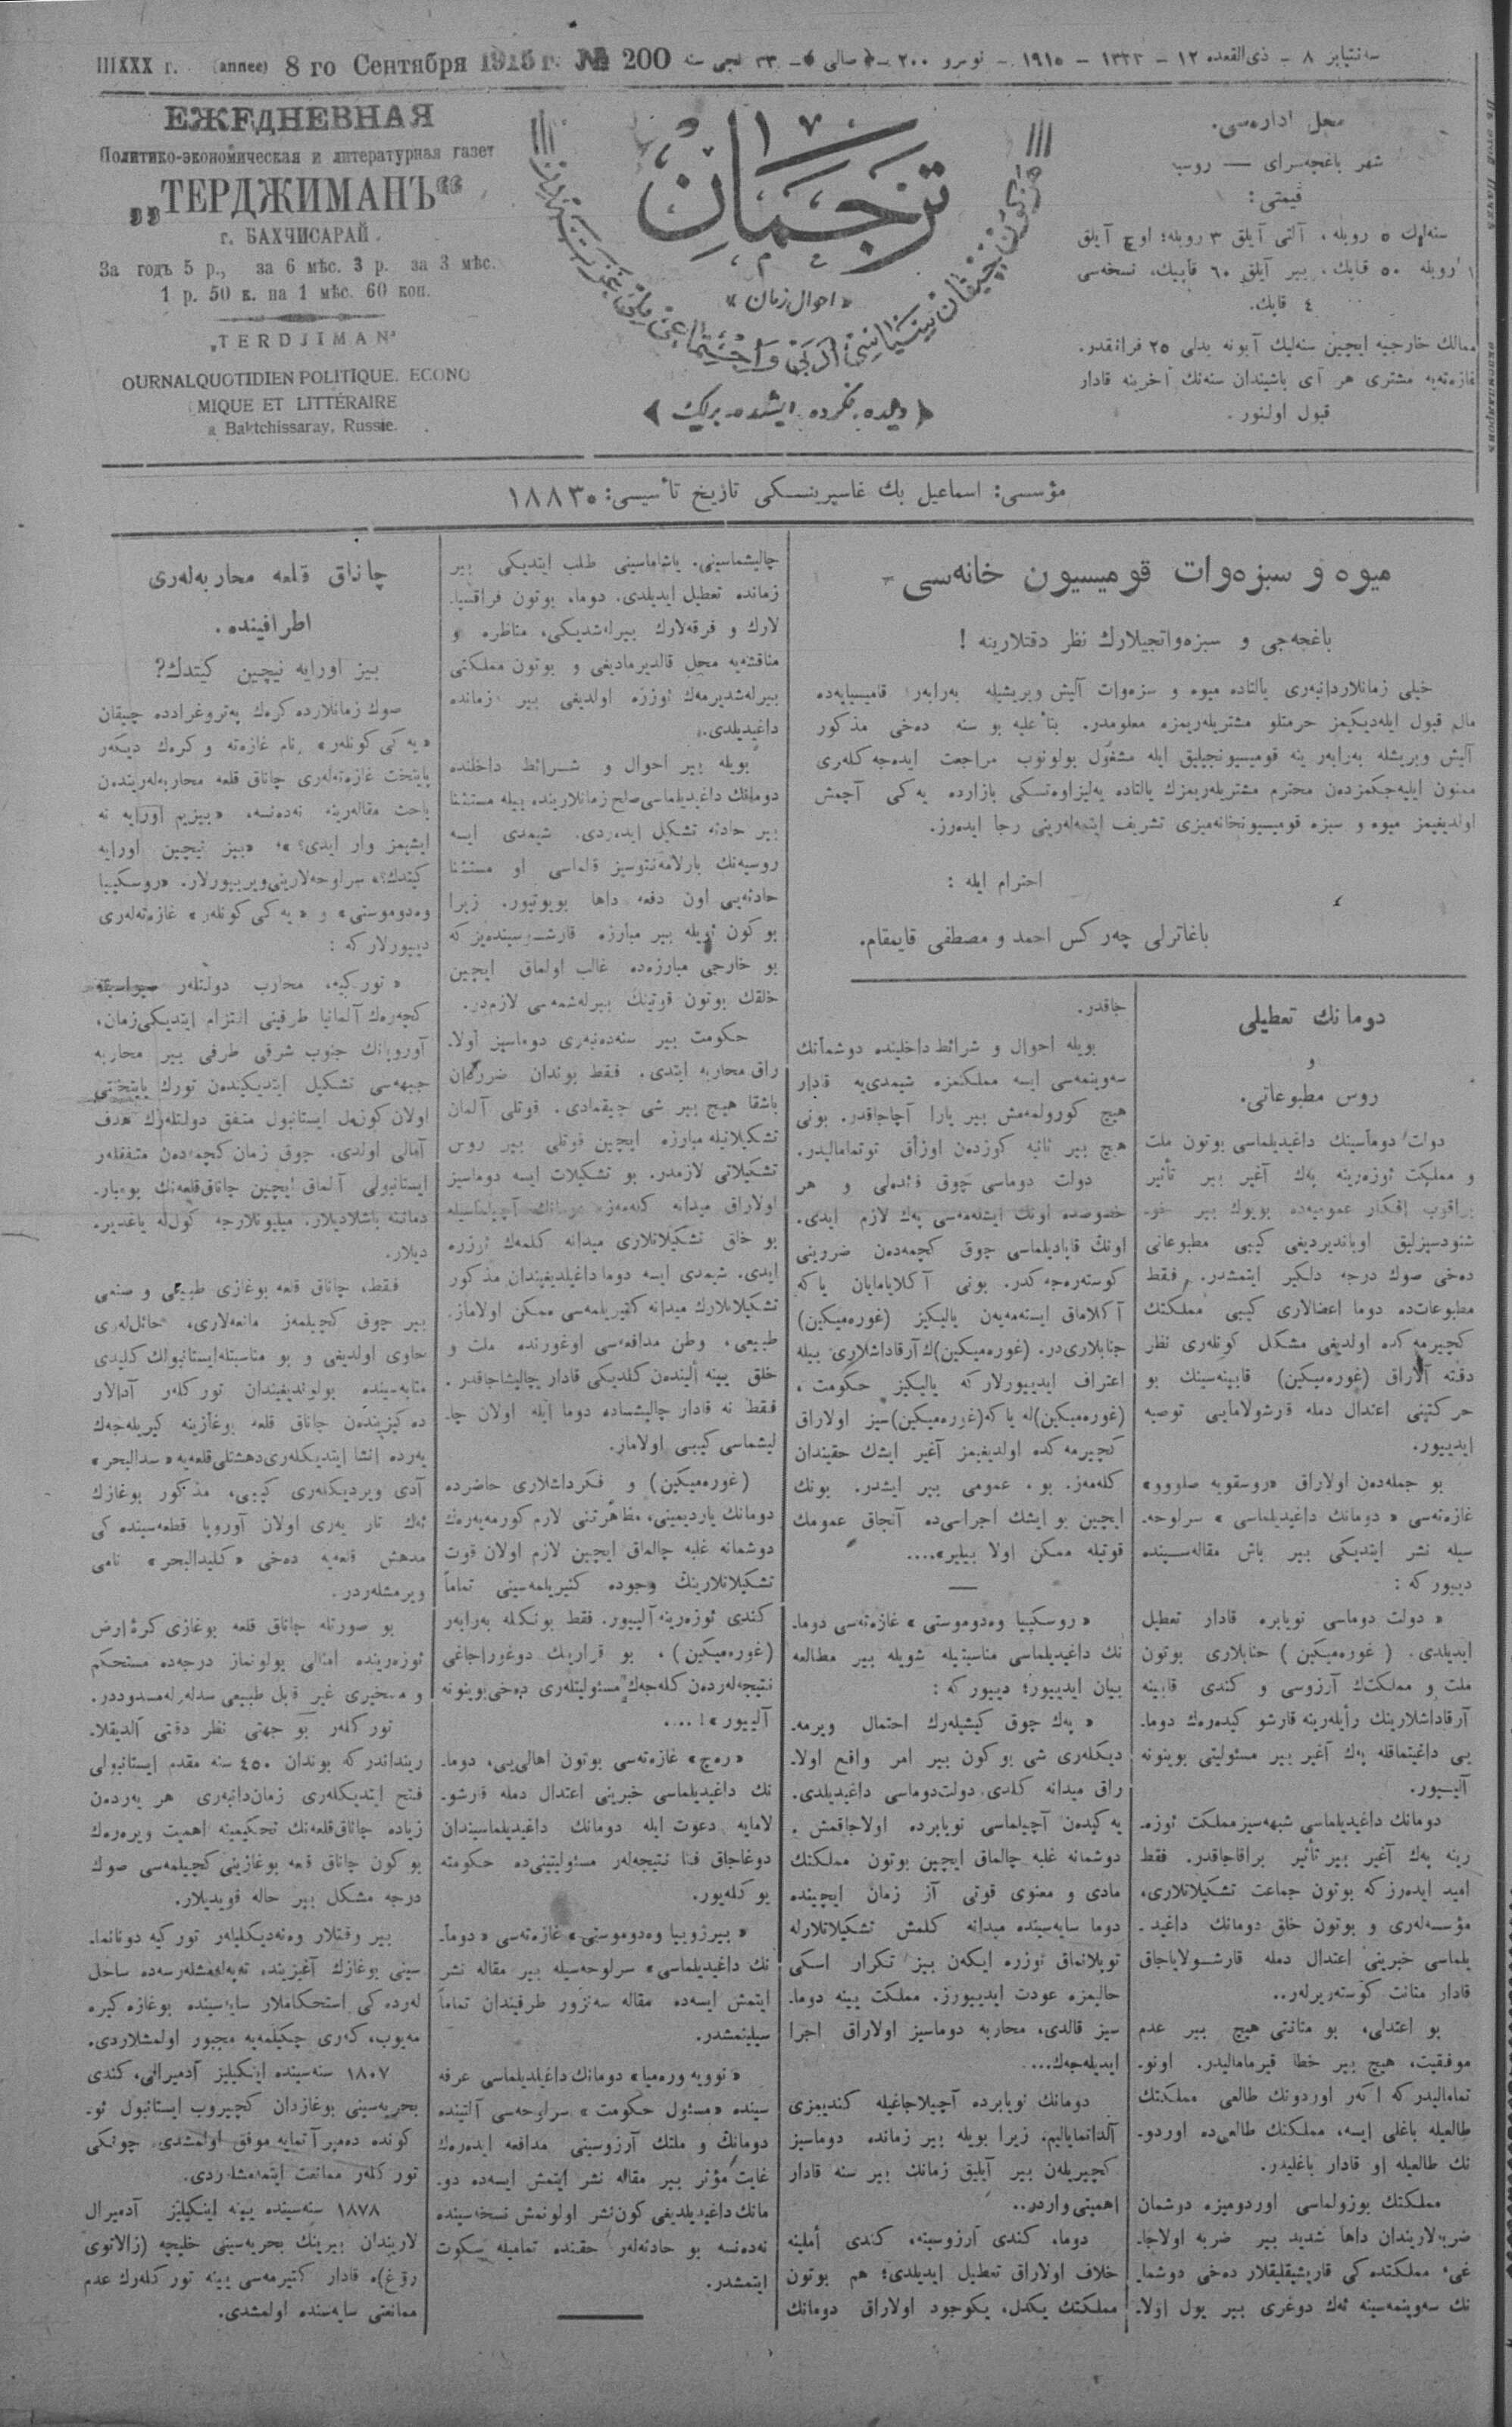 سه‌نتیابر ٨ – ذی‌القعده ١٢ – ١٣٣٣ – ١٩١٥ – نومرو ٢٠٠ – ﴿صالی﴾ – ٣٣ نجی سنه
IIIXXX г. (annee) 8 го Сентября 1915 г. № 200
ЕЖЕДНЕВНАЯ
Политико-экономическая и литературная газет
„ТЕРДЖИМАНЪ“
г. БАХЧИСАРАЙ.
За годъ 5 р., за 6 мѣс. 3 р. за 3 мѣс.
1 р. 50 к. на 1 мѣс. 60 коп.
„TERDJIMAN“
OURNAL QUOTIDIEN POLITIQUE. ECONO
MIQUE ET LITTÉRAIRE
a Baktchissaray, Russie.
ترجمان
«احوال زمان»
﴿دیلده، فكرده، ایشده، برلك﴾
محل اداره‌سی.
شهر باغچه‌سرای — روسیه
قیمتی:
سنه‌لك ٥ روبله، آلتی آیلق ٣ روبله؛ اوچ آیلق
١ روبله ٥٠ قاپك، بیر آیلق ٦٠ قاپیك، نسخه‌سی
٤ قاپك.
ممالك خارجیه ایچین سنه‌لیك آبونه بدلی ٢٥ فرانقدر.
غازه‌ته‌یه مشتری هر آی باشیندان سنه‌نك آخرینه قادار
قبول اولنور.
مؤسسی: اسماعیل بك غاسپرینسكی تاریخ تأسیسی: ١٨٨٣٠
میوه و سبزه‌وات قومیسیون خانه‌سی
باغچه‌جی و سبزه‌واتجیلارك نظر دقتلارینه !
خیلی زمانلاردانبه‌ری یالتاده میوه و سبزه‌وات آلیش ویریشیله به‌رابه‌ر قامیسیایه‌ده
مال قبول ایله‌دیكیمز حرمتلو مشتریله‌ریمزه معلومدر. بناً علیه بو سنه ده‌خی مذكور
آلیش ویریشله به‌رابه‌ر ینه قومیسیونجیلیق ایله مشغول بولونوب مراجعت ایده‌جه كله‌ری
ممنون ایلیه‌جكمزدن محترم مشتریله‌ریمزك یالتاده یه‌لیزاوه‌تسكی بازارده یه كی آچمش
اولدیغیمز میوه و سبزه قومیسیونخانه‌میزی تشریف ایتمه‌له‌رینی رجا ایده‌رز.
احترام ایله :
باغاترلی چه‌ركس احمد و مصطفی قایمقام.
دومانك تعطیلی
و
روس مطبوعاتی.
دولت دوماسینك داغیدیلماسی بوتون ملت
و مملكت ئوزه‌رینه په‌ك آغیر بیر تأثیر
براقوب افكار عمومیه‌ده بویوك بیر خو-
شنودسیزلیق اویاندیردیغی كیبی مطبوعاتی
ده‌خی صوك درجه دلگیر ایتمشدر. فقط
مطبوعات‌ده دوما اعضالاری كیبی مملكتك
كچیرمه كده اولدیغی مشكل كونله‌ری نظر
دقته آلاراق (غوره‌میكین) قابینه‌سینك بو
حركتینی اعتدال دمله قارشولامایی توصیه
ایدییور.
بو جمله‌دن اولاراق «روسقویه صلووو»
غازه‌ته‌سی «دومانك داغیدیلماسی» سرلوحه-
سیله نشر ایتدیكی بیر باش مقاله‌سینده
دییور كه :
«دولت دوماسی نویابره قادار تعطیل
ایدیلدی. (غوره‌میكین) جنابلاری بوتون
ملت و مملكتك آرزوسی و كندی قابینه
آرقاداشلارینك رأیله‌رینه قارشو كیده‌ره‌ك دوما-
یی داغیتماقله په‌ك آغیر بیر مسئولیتی بوینونه
آلییور.
دومانك داغیدیلماسی شبهه‌سیز مملكت ئوزه-
رینه په‌ك آغیر بیر تأثیر براقاجاقدر. فقط
امید ایده‌رز كه بوتون جماعت تشكیلاتلاری،
مؤسسه‌له‌ری و بوتون خلق دومانك داغید-
یلماسی خبرینی اعتدال دمله قارشولایاجاق
قادار متانت كوسته‌ریرله‌ر..
بو اعتدالی، بو متانتی هیچ بیر عدم
موفقیت، هیچ بیر خطا قیرمامالیدر. اونو-
تمامالیدر كه اكه‌ر اوردونك طالعی مملكتك
طالعیله باغلی ایسه، مملكتك طالعی‌ده اوردو-
نك طالعیله او قادار باغلیدر.
مملكتك بوزولماسی اوردومیزه دوشمان
ضربه‌لاریندان داها شدید بیر ضربه اولاجا-
غی، مملكتده كی قاریشیقلیقلار ده‌خی دوشما-
نك سه‌وینمه‌سینه ئه‌ك دوغری بیر یول اولا-
جاقدر.
بویله احوال و شرائط داخلینده دوشمأنك
سه‌وینمه‌سی ایسه مملكتمزه شیمدی‌یه قادار
هیچ كورولمه‌مش بیر یارا آچاجاقدر. بونی
هیچ بیر ثانیه كوزدن اوزاق توتمامالیدر.
دولت دوماسی چوق فائده‌لی و هر
خصوصده اونك ایشله‌مه‌سی په‌ك لازم ایدی.
اونك قاپادیلماسی چوق كچمه‌دن ضررینی
كوسته‌ره‌جه كدر. بونی آكلایامایان یا كه
آكلاماق ایسته‌مه‌یه‌ن یالیكیز (غوره‌میكین)
جنابلاری‌در. (غوره‌میكین)ك آرقاداشلاری بیله
اعتراف ایدییورلار كه یالیكیز حكومت،
(غوره‌میكین)له یا كه (غوره‌میكین)سیز اولاراق
كچیرمه كده اولدیغیمز آغیر ایشك حقیندان
كله‌مه‌ز. بو، عمومی بیر ایشدر. بونك
ایچین بو ایشك اجراسی‌ده آنجاق عمومك
قوتیله ممكن اولا بیلیر»....
«روسكییا وه‌دوموستی» غازه‌ته‌سی دوما-
نك داغیدیلماسی مناسبتیله شویله بیر مطالعه
بیان ایدییور؛ دییور كه :
«په‌ك چوق كیشیله‌رك احتمال ویرمه-
دیكله‌ری شی بو كون بیر امر واقع اولا-
راق میدانه كلدی. دولت دوماسی داغیدیلدی.
یه كیدن آچیلماسی نویابرده اولاجاقمش.
دوشمانه غلبه چالماق ایچین بوتون مملكتك
مادی و معنوی قوتی آز زمان ایچینده
دوما سایه‌سینده میدانه كلمش تشكیلاتلارله
توپلانماق ئوزره ایكه‌ن بیز تكرار اسكی
حالیمزه عودت ایدییورز. مملكت یینه دوما-
سیز قالدی، محاربه دوماسیز اولاراق اجرا
ایدیله‌جه‌ك...
دومانك نویابرده آچیلاجاغیله كندیمزی
آلداتمایالیم. زیرا بویله بیر زمانده دوماسیز
كچیریله‌ن بیر آیلیق زمانك بیر سنه قادار
اهمیتی واردر..
دوما، كندی آرزوسینه، كندی أملینه
خلاف اولاراق تعطیل ایدیلدی؛ هم بوتون
مملكتك یكدل، یكوجود اولاراق دومانك
چالیشماسینی. یاشاماسینی طلب ایتدیكی بیر
زمانده تعطیل ایدیلدی. دوما، بوتون فراقسیا-
لارك و فرقه‌لارك بیرله‌شدیكی، مناظره و
مناقشه‌یه محل قالدیرمادیغی و بوتون مملكتی
بیرله‌شدیرمه‌ك ئوزره اولدیغی بیر زمانده
داغیدیلدی.
بویله بیر احوال و شرائط داخلنده
دومانك داغیدیلماسی صلح زمانلارینده بیله مستثنا
بیر حادثه تشكیل ایده‌ردی. شیمدی ایسه
روسیه‌نك بارلامه‌نتوسیز قالماسی او مستثنا
حادثه‌یی اون دفعه داها بویوتیور. زیرا
بو كون ئویله بیر مبارزه قارشوسینده‌یز كه
بو خارجی مبارزه‌ده غالب اولماق ایچین
خلقك بوتون قوتینك بیرله‌شمه‌سی لازم‌در.
حكومت بیر سنه‌ده‌نبه‌ری دوماسیز اولا-
راق محاربه ایتدی. فقط بوندان ضرردان
باشقا هیچ بیر شی چیقمادی. قوتلی آلمان
تشكیلاتیله مبارزه ایچین قوتلی بیر روس
تشكیلاتی لازمدر. بو تشكیلات ایسه دوماسیز
اولاراق میدانه كله‌مه‌ز. دومانك آچیلماسیله
بو خلق تشكیلاتلاری میدانه كلمه‌ك ئوزره
ایدی. شیمدی ایسه دوما داغیلدیغیندان مذكور
تشكیلاتلارك میدانه كتیریلمه‌سی ممكن اولاماز.
طبیعی، وطن مدافعه‌سی اوغورنده ملت و
خلق یینه ألینده‌ن كلدیكی قادار چالیشاجاقدر.
فقط نه قادار چالیشساده دوما ایله اولان چا-
لیشماسی كیبی اولاماز.
(غوره‌میكین) و فكرداشلاری حاضرده
دومانك یاردیمینی، مظاهرتنی لازم كورمه‌یه‌ره‌ك
دوشمانه غلبه چالماق ایچین لازم اولان قوت
تشكیلاتلارینك وجوده كتیریلمه‌سینی تماماً
كندی ئوزه‌رینه آلییور. فقط بونكله به‌رابه‌ر
(غوره‌میكین)، بو قرارینك دوغوراجاغی
نتیجه‌له‌ردن كله‌جه‌ك مسئولیتله‌ری ده‌خی بوینونه
آلییور»! ....
«ره‌چ» غازه‌ته‌سی بوتون اهالی‌یی، دوما-
نك داغیدیلماسی خبرینی اعتدال دمله قارشو-
لامایه دعوت ایله دومانك داغیدیلماسیندان
دوغاجاق فنا نتیجه‌له‌ر مسئولیتینی‌ده حكومته
یوكله‌یور.
«بیرژوییا وه‌دوموستی» غازه‌ته‌سی «دوما-
نك داغیدیلماسی» سرلوحه‌سیله بیر مقاله نشر
ایتمش ایسه‌ده مقاله سه‌نزور طرفیندان تماماً
سیلینمشدر.
«نوویه وره‌میا» دومانك داغیلدیلماسی عرفه
سینده «مسئول حكومت» سرلوحه‌سی آلتینده
دومانك و ملتك آرزوسینی مدافعه ایده‌ره‌ك
غایت مؤثر بیر مقاله نشر ایتمش ایسه‌ده دو-
مانك داغیدیلدیغی كون نشر اولونمش نسخه‌سینده
نه‌ده‌نسه بو حادثه‌له‌ر حقنده تمامیله سكوت
ایتمشدر.
چاناق قلعه محاربه‌له‌ری
اطرافینده.
بیز اورایه نیچین كیتدك؟
صوك زمانلارده كره‌ك په‌تروغرادده چیقان
«یه كی كونله‌ر» نام غازه‌ته و كره‌ك دیكه‌ر
پایتخت غازه‌ته‌له‌ری چاناق قلعه محاربه‌له‌رینده‌ن
باحث مقاله‌رینه نه‌ده‌نسه، «بیزیم اورایه نه
ایشیمز وار ایدی؟»، «بیز نیچین اورایه
كیتدك؟» سرلوحه‌لارینی ویرییورلار. «روسكییا
وه‌دوموستی» و «یه كی كونله‌ر» غازه‌ته‌له‌ری
دییورلار كه :
«توركیه، محارب دولتله‌ر
كچه‌ره‌ك آلمانیا طرفینی التزام ایتدیكی زمان،
آوروپانك جنوب شرقی طرفی بیر محاربه
جبهه‌سی تشكیل ایتدیكیندن تورك پایتختی
اولان كوزه‌ل ایستانبول متفق دولتله‌رك هدف
آمالی اولدی. چوق زمان كچمه‌دن متفقله‌ر
ایستانبولی آلماق ایچین چاناق‌قلعه‌نك بومبار-
دمانینه باشلادیلار. میلیونلارجه كولله یاغدیر-
دیلار.
فقط، چاناق قلعه بوغازی طبیعی و صنعی
بیر چوق كچیلمه‌ز مانعه‌لاری، حائل‌له‌ری
حاوی اولدیغی و بو مناسبتله ایستانبولك كلیدی
مثابه‌سینده بولوندیغیندان توركله‌ر آدالار
ده‌كیزینده‌ن چاناق قلعه بوغازینه كیریله‌جه‌ك
یه‌رده إنشا ایتدیكله‌ری دهشتلی قلعه‌یه «سدالبحر»
آدی ویردیكله‌ری كیبی، مذكور بوغازك
ئه‌ك تار یه‌ری اولان آوروپا قطعه‌سینده كی
مدهش قلعه‌یه ده‌خی «كلیدالبحر» نامی
ویرمشله‌ردر.
بو صورتله چاناق قلعه بوغازی كرهٔ ارض
ئوزه‌رینده امثالی بولونماز درجه‌ده مستحكم
و تسخیری غیر قابل طبیعی سدله‌رله مسدوددر.
توركله‌ر بو جهتی نظر دقتی آلدیقلا-
رینداندر كه بوندان ٤٥٠ سنه مقدم ایستانبولی
فتح ایتدیكله‌ری زمان‌دانبه‌ری هر یه‌رده‌ن
زیاده چاناق‌قلعه‌نك تحكیمینه اهمیت ویره‌ره‌ك
بو كون چاناق قلعه بوغازینی كچیلمه‌سی صوك
درجه مشكل بیر حاله قویدیلار.
بیر وقتلار وه‌نه‌دیكلیله‌ر توركیه دونانما-
سینی بوغازك آغیزینده ته‌په‌له‌مشله‌رسه‌ده ساحل
له‌رده كی استحكاملار سایه‌سینده بوغازه كیره
مه‌یوب، كه‌ری چكیلمه‌یه مجبور اولمشلاردی.
١٨٠٧ سنه‌سینده اینكیلیز آدمیرالی، كندی
بحریه‌سینی بوغازدان كچیروب ایستانبول ئو-
كونده ده‌میر آتمایه موفق اولمشدی. چونكی
توركله‌ر ممانعت ایتمه‌مشله‌ردی.
١٨٧٨ سنه‌سینده یینه اینكیلیز آدمیرال
لاریندان بیرینك بحریه‌سینی خلیجه (زالاتوی
روغ)ه قادار كتیرمه‌سی یینه توركله‌رك عدم
ممانعتی سایه‌سنده اولمشدی.